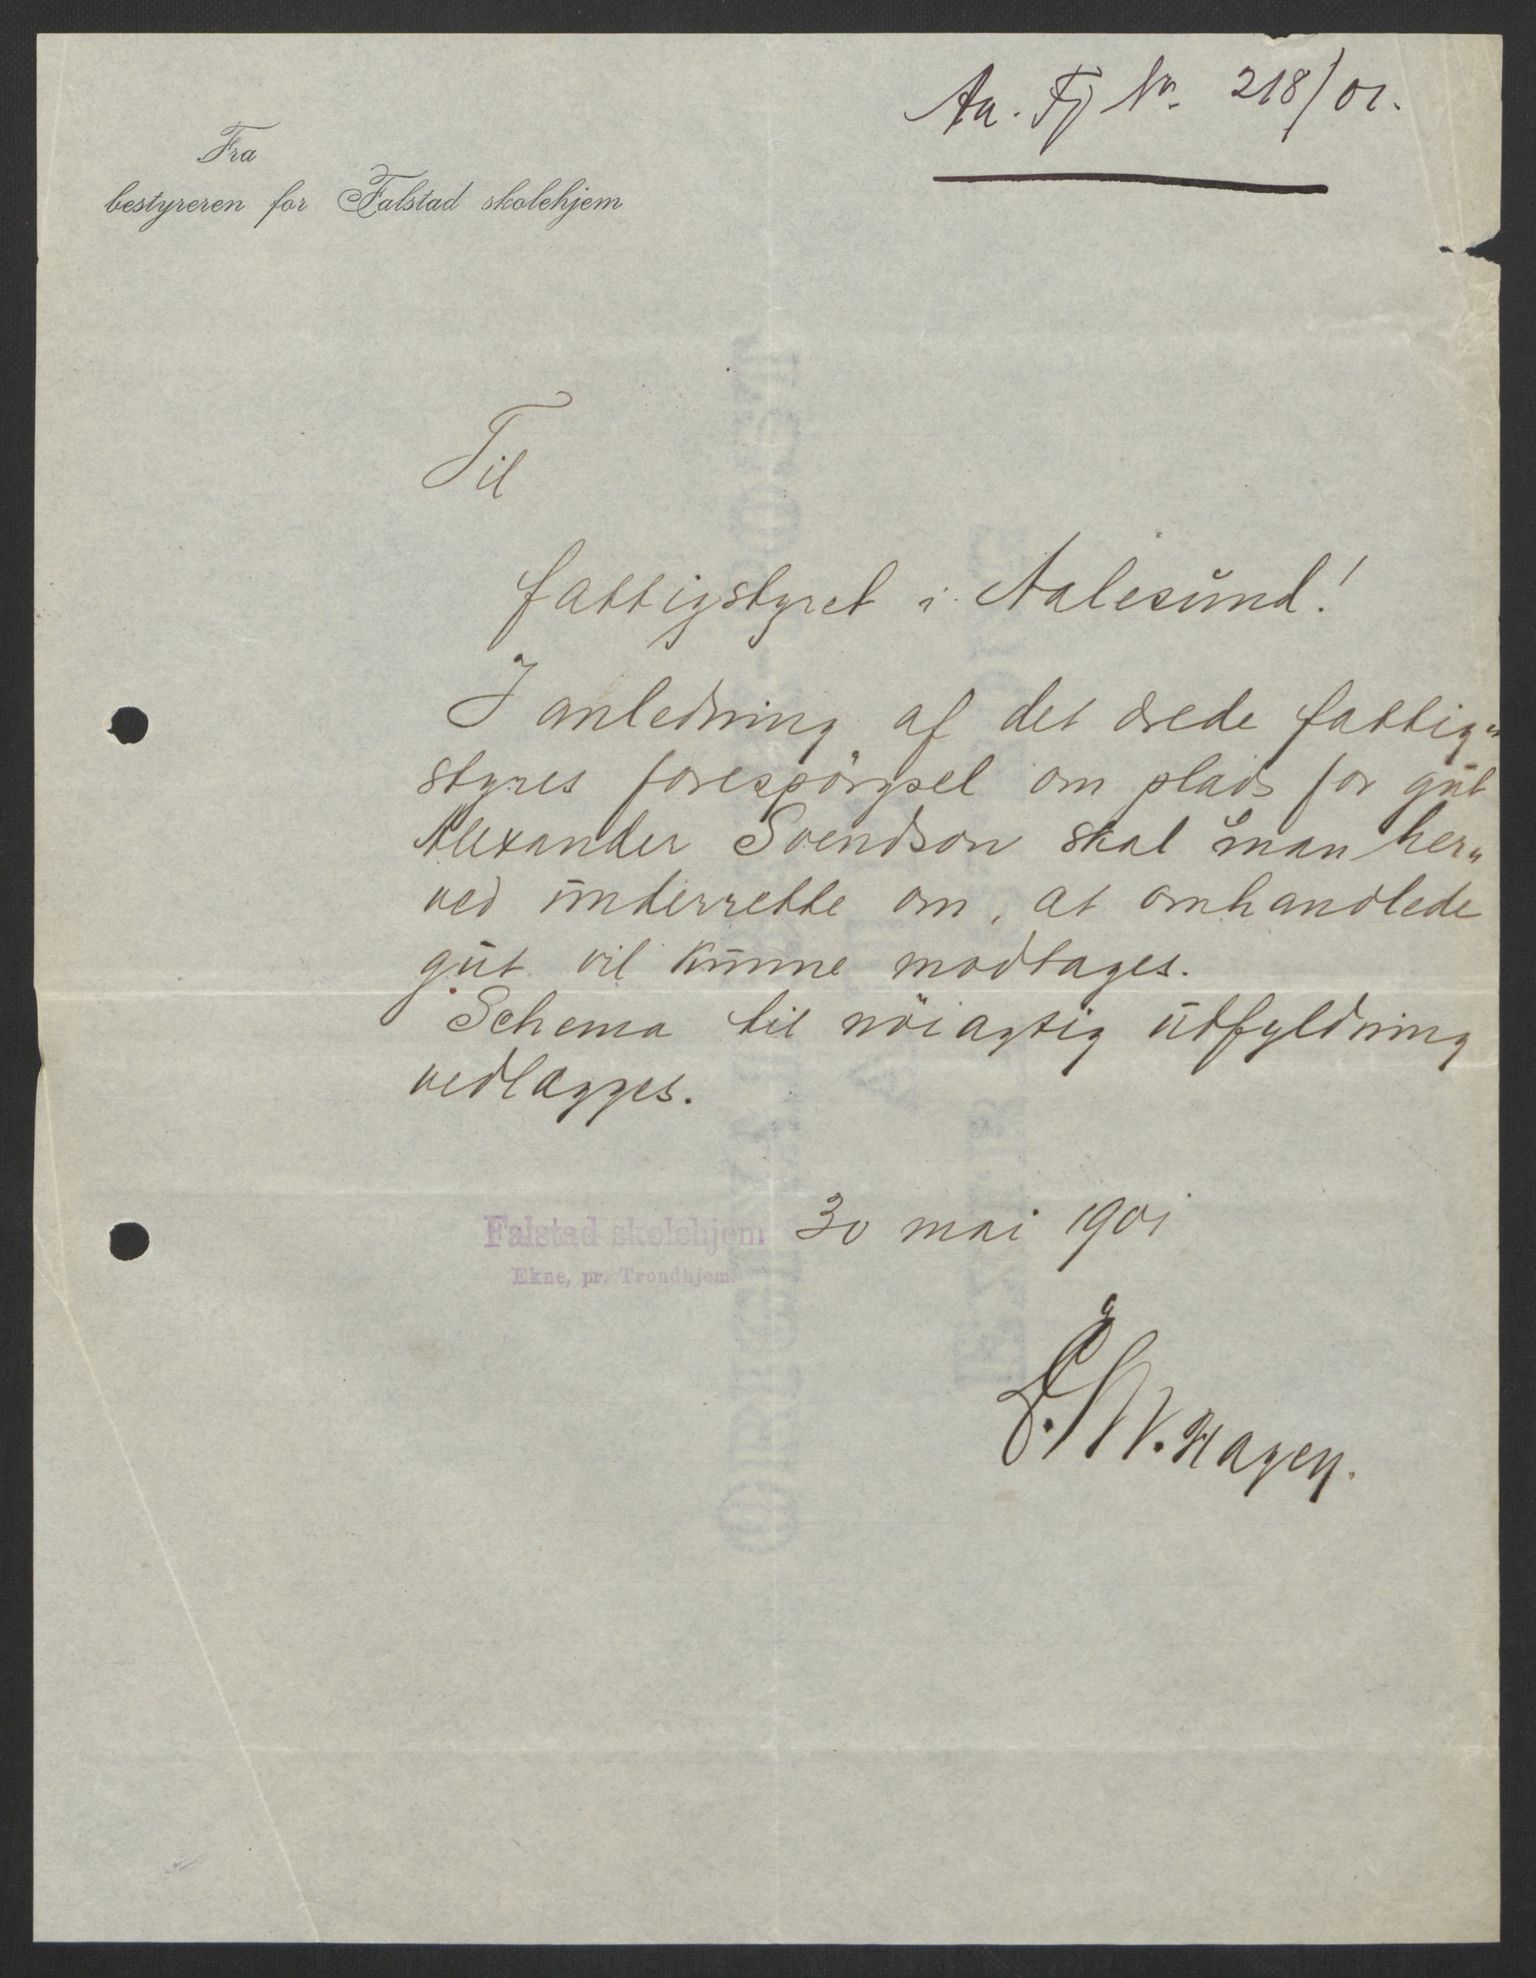 Aa. Fj Nr. 218/01.
Fra
bestyreren for Falstad skolehjem
Til
fattigstyret i Aalesund!
I anledning af det ærede fattig-
styres forespörgsel om plads for gut
Alexander Svendson skal man her-
ved underrette om, at omhandlede
gut vil kunne modtages.
Schema til nöiagtig udfyldning
vedlægges.
Falstad skolehjem 30 mai 1901
Ekne, pr. Trondhjem.
Hagen.